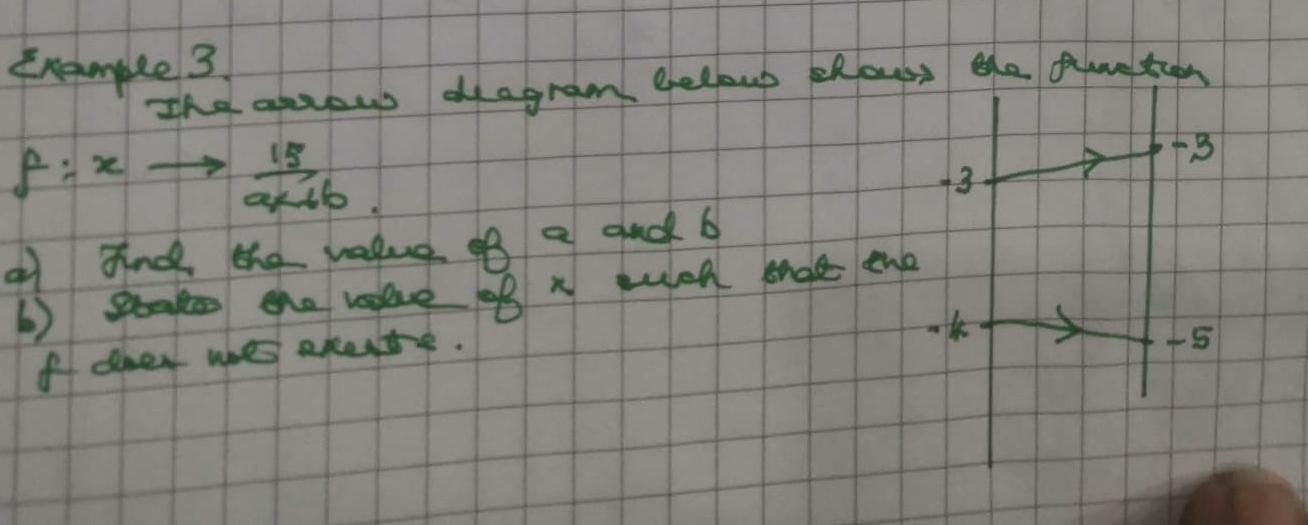 Example 3.
The arrow diagram below shows the function
f : x → 15/ax+b.
a) Find the value of a and b
b) State the value of x such that the
f does not existe.
-3 -3
-4 -5